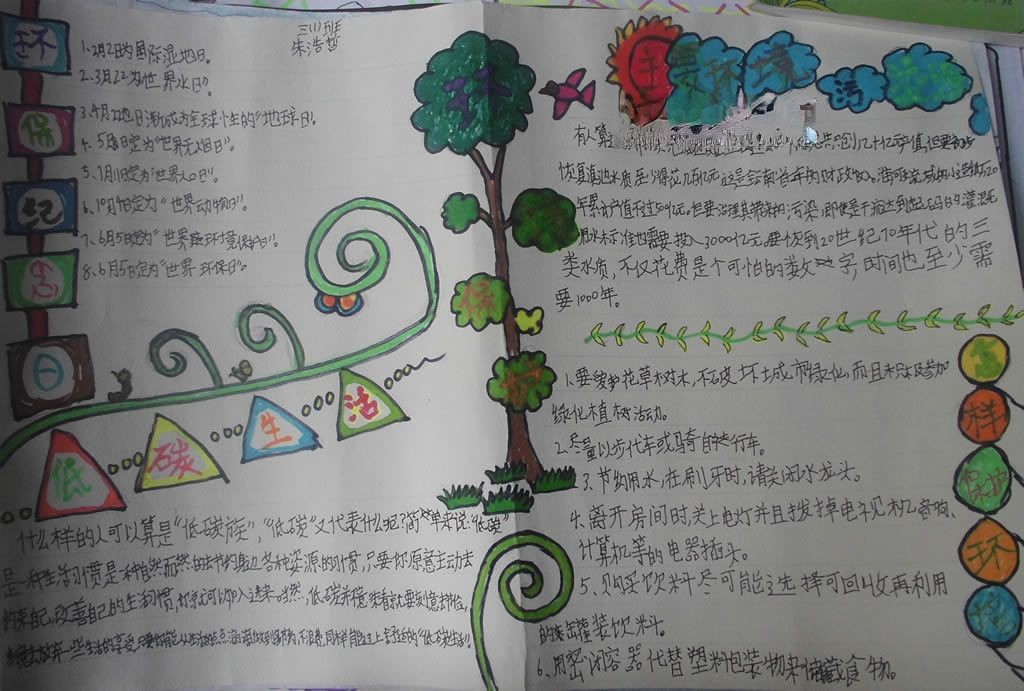 三(1)班
朱浩哲
环
保
纪
念
日
1.2月2日为国际湿地日。
2.3月22为世界水日》。
3.4月22地日渐成为全球性的"地球日》。
4.5月8日定为"世界无烟日》。
5.7月11日定为"世界人口日》。
6.10月4日定为"世界动物日》。
7.6月5日定为"世界环境保护日》。
8.6月5日定为"世界环保日》。
低
碳
生
活
什么样的人可以算是"低碳族","低碳"又代表什么呢?简单来说,"低碳"
是一种生活习惯是一种自然而然的去节约身边各种资源的习惯,只要你愿意主动去
约束自己,改善自己的生活习惯,你就可以加入进来。当然,低碳并不意味着就要刻意去节俭,
刻意去放弃一些生活的享受,只要你能从生活的点滴做到
环
保
主要环境污染
恢复滇池水质至少得花几百亿元这是云南省年的财政收入。淮河流域的小造纸厂,20
年累计产值不过500亿元。但要治理其带来的污染,即使是干流达到起码的灌溉
用水标准也需要投入3000亿元。要恢到20世纪70年代的三
类水质,不仅花费是个可怕的数字,时间也至少需
要100年。
怎
样
保护
环
境
1.要爱护花草树木,不破坏城市绿化,而且积极参加
绿化植树活动。
2.尽量以步代车或骑自行车。
3.节约用水,在刷牙时,请关闭水龙头。
4.离开房间时,关上电灯并且拔掉电视机、音响、
计算机等的电器插头。
5.购买饮料尽可能选择可回收再利用
的罐装饮料。
6.用密闭容器代替塑料包装物来储藏食物。